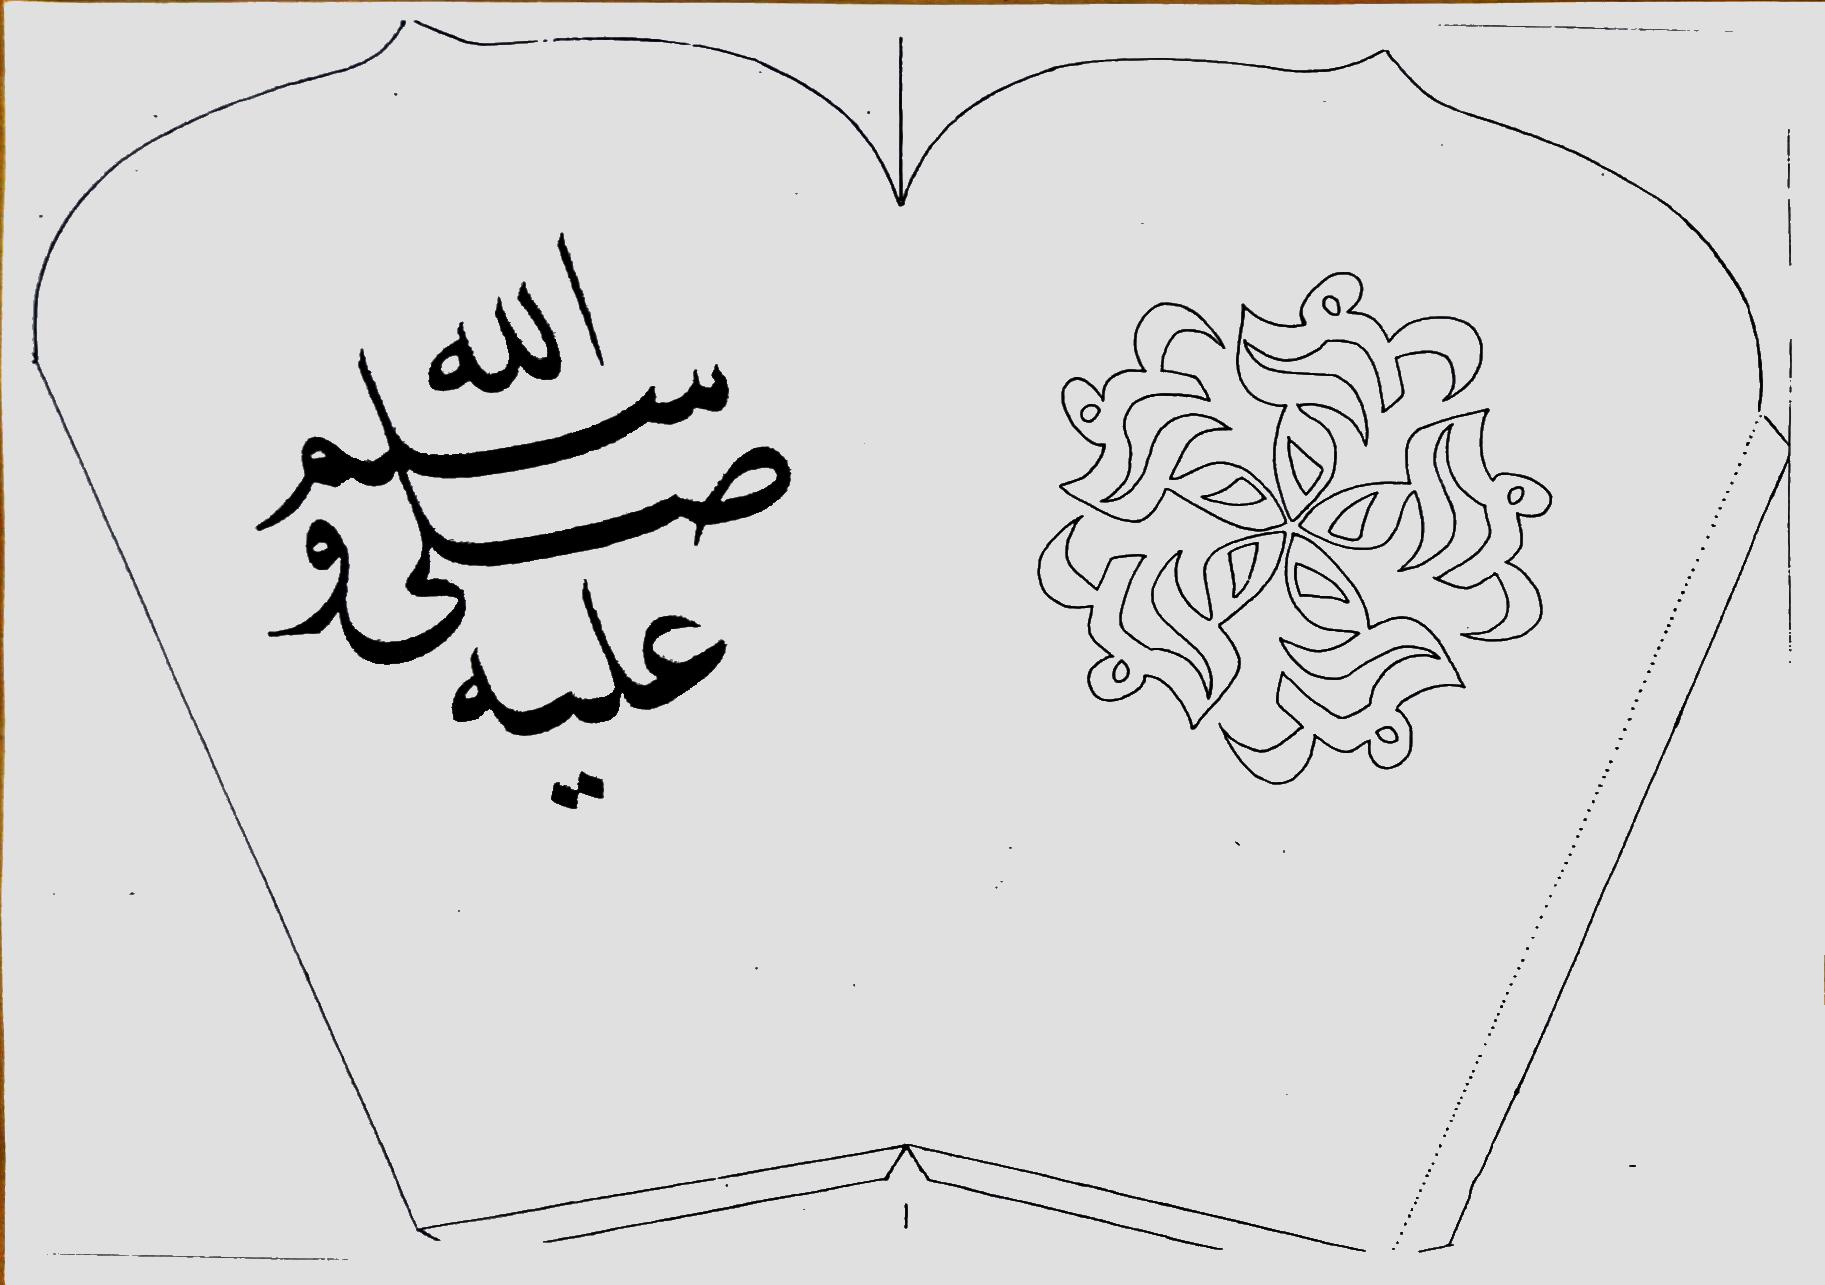 صلى الله
عليه وسلم